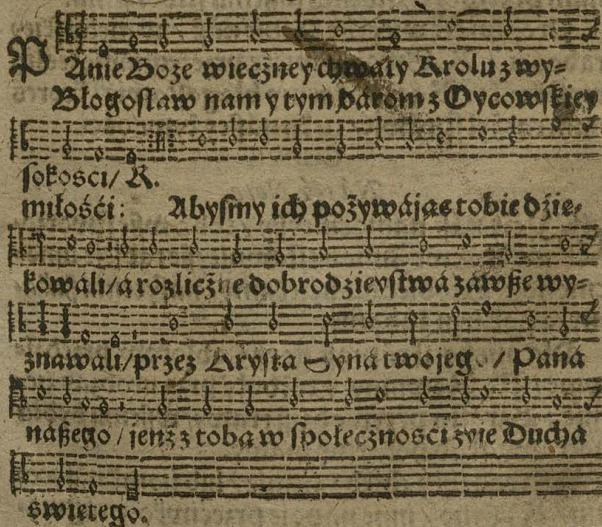 PAnie Boże wieczney chwały Krolu z wy=
Błogosław nam y tym darom z Oycowskiey
sokosci/ R.
miłośći: Abysmy ich pożywáiąc tobie dzie=
kowáli/á rozliczne dobrodzieystwá záwsze wy=
znawali/przez Krystá Syná twojego / Páná
nászego / jenż z tobą w społecżnosći żyie Duchá
swietego.